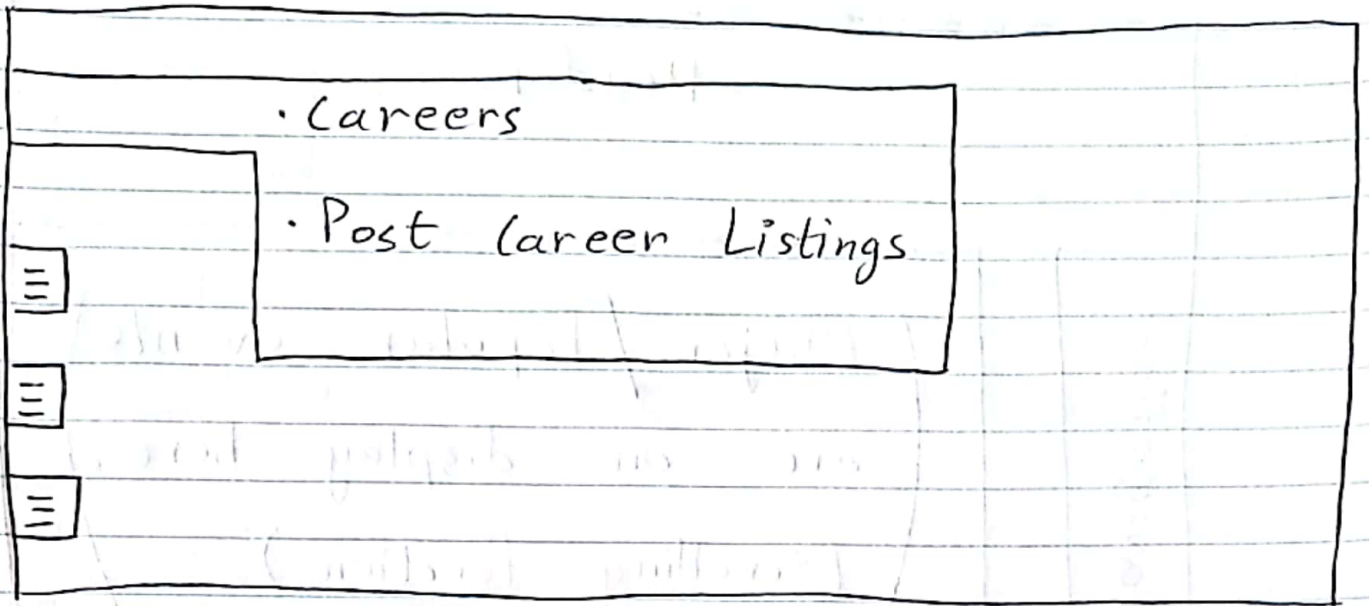 · Careers
· Post Career Listings